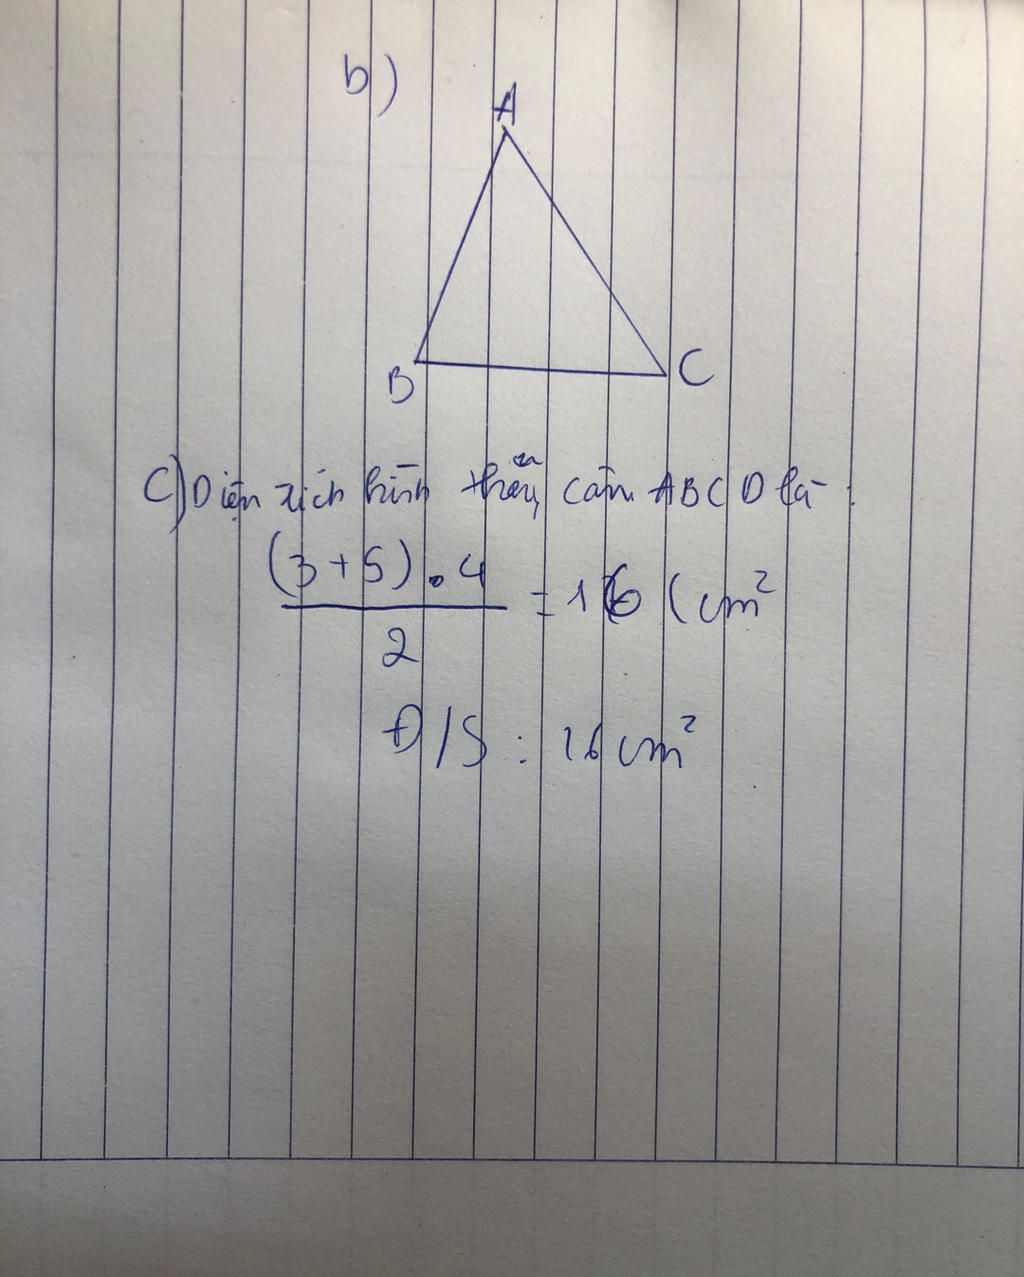 b)
A
B
C
C) Diện tích hình thang cân ABCD là:
(3+5).4
2
=16 (cm²
Đ/S: 16cm²